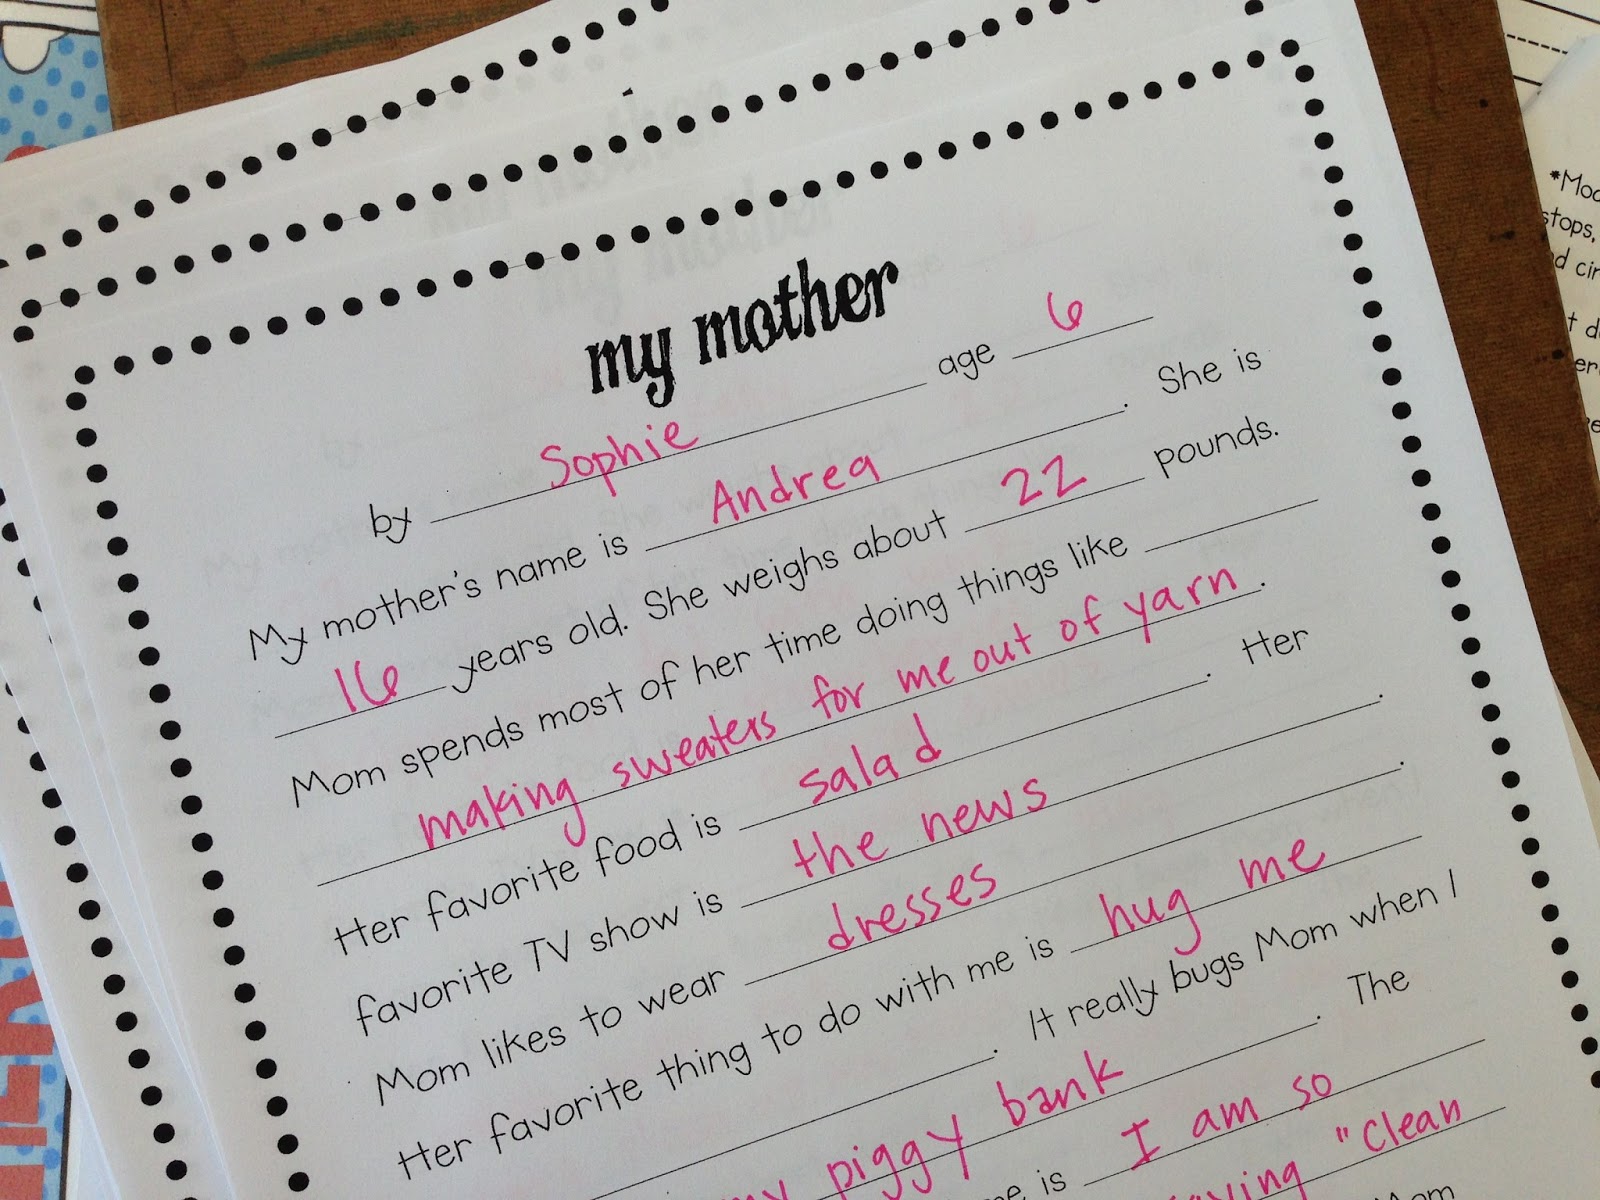 my mother
by Sophie age 6
My mother's name is Andrea. She is
16 years old. She weighs about 22 pounds.
Mom spends most of her time doing things like
making sweaters for me out of yarn.
Her favorite food is salad. Her
favorite TV show is the news.
Mom likes to wear dresses.
Her favorite thing to do with me is hug me
. It really bugs Mom when I
my piggy bank. The
me is I am so
"Clean
Mom
*Moo
stops,